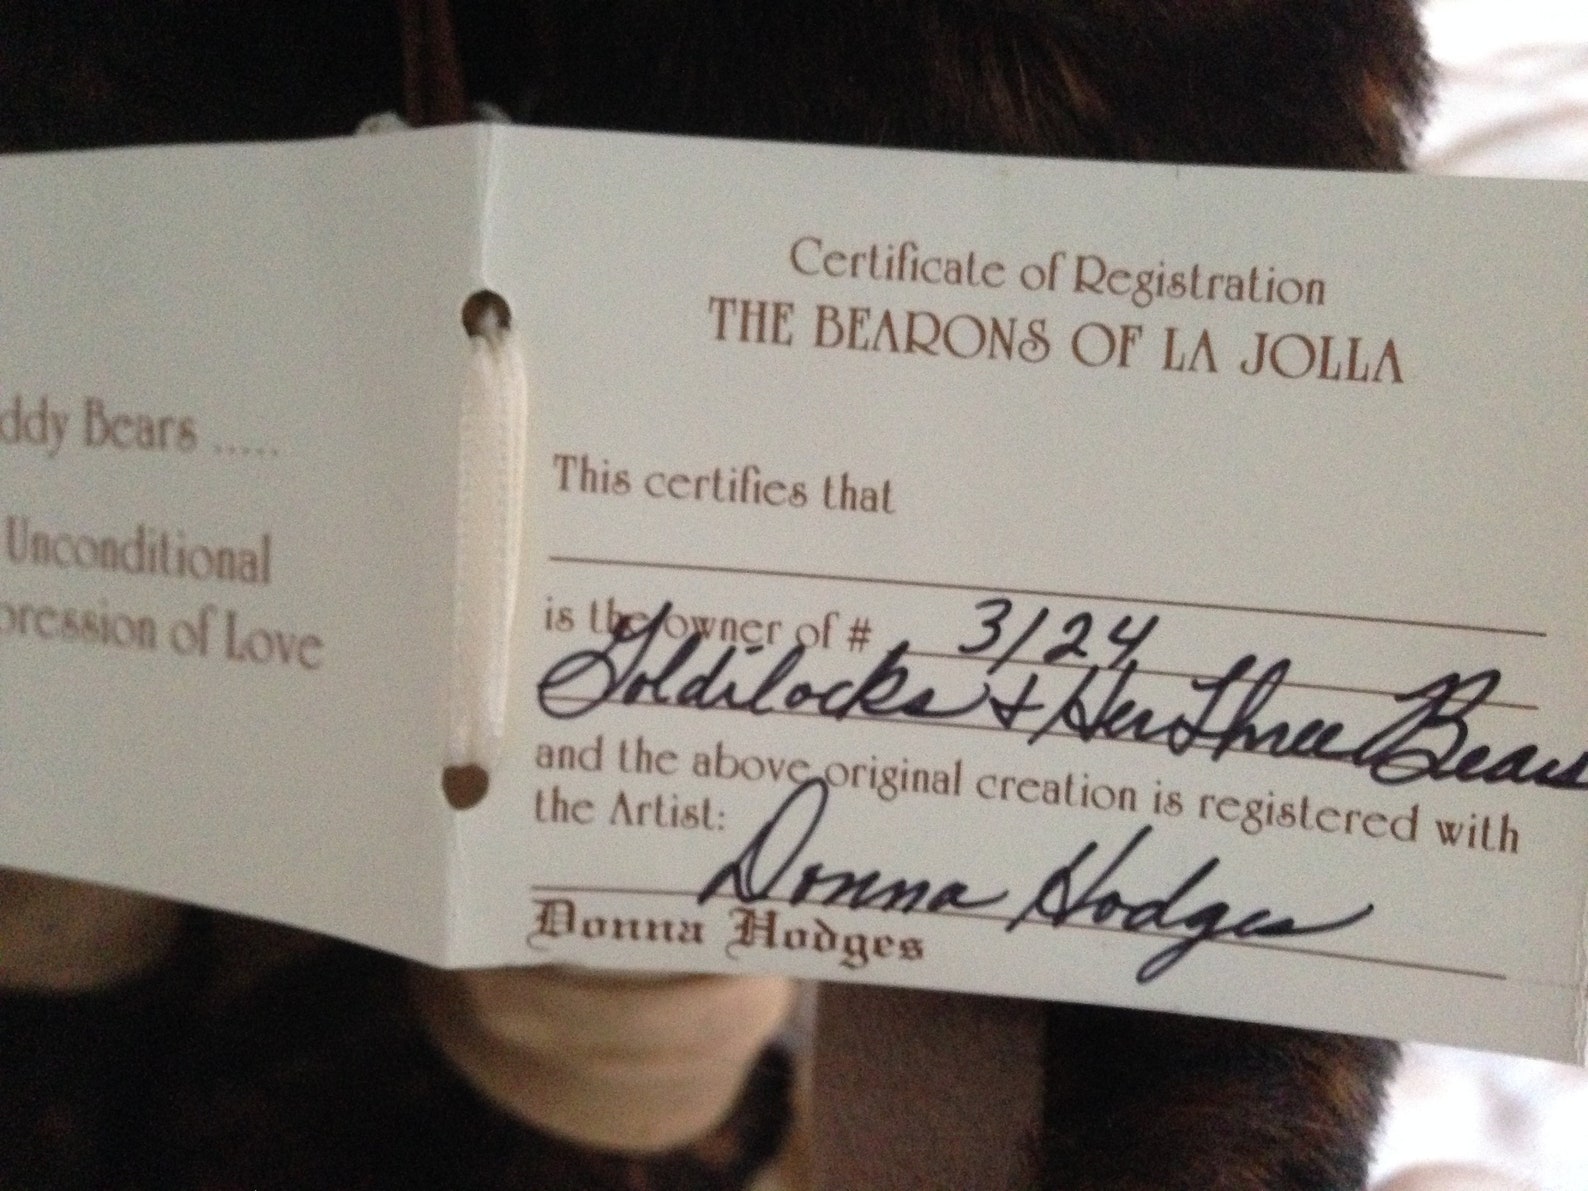 ddy Bears .....
Unconditional
pression of Love
Certificate of Registration
THE BEARONS OF LA JOLLA
This certifies that
is the owner of # 3/24
Goldilocks & Her Three Bears
and the above original creation is registered with
the Artist:
Donna Hodges
Donna Hodges